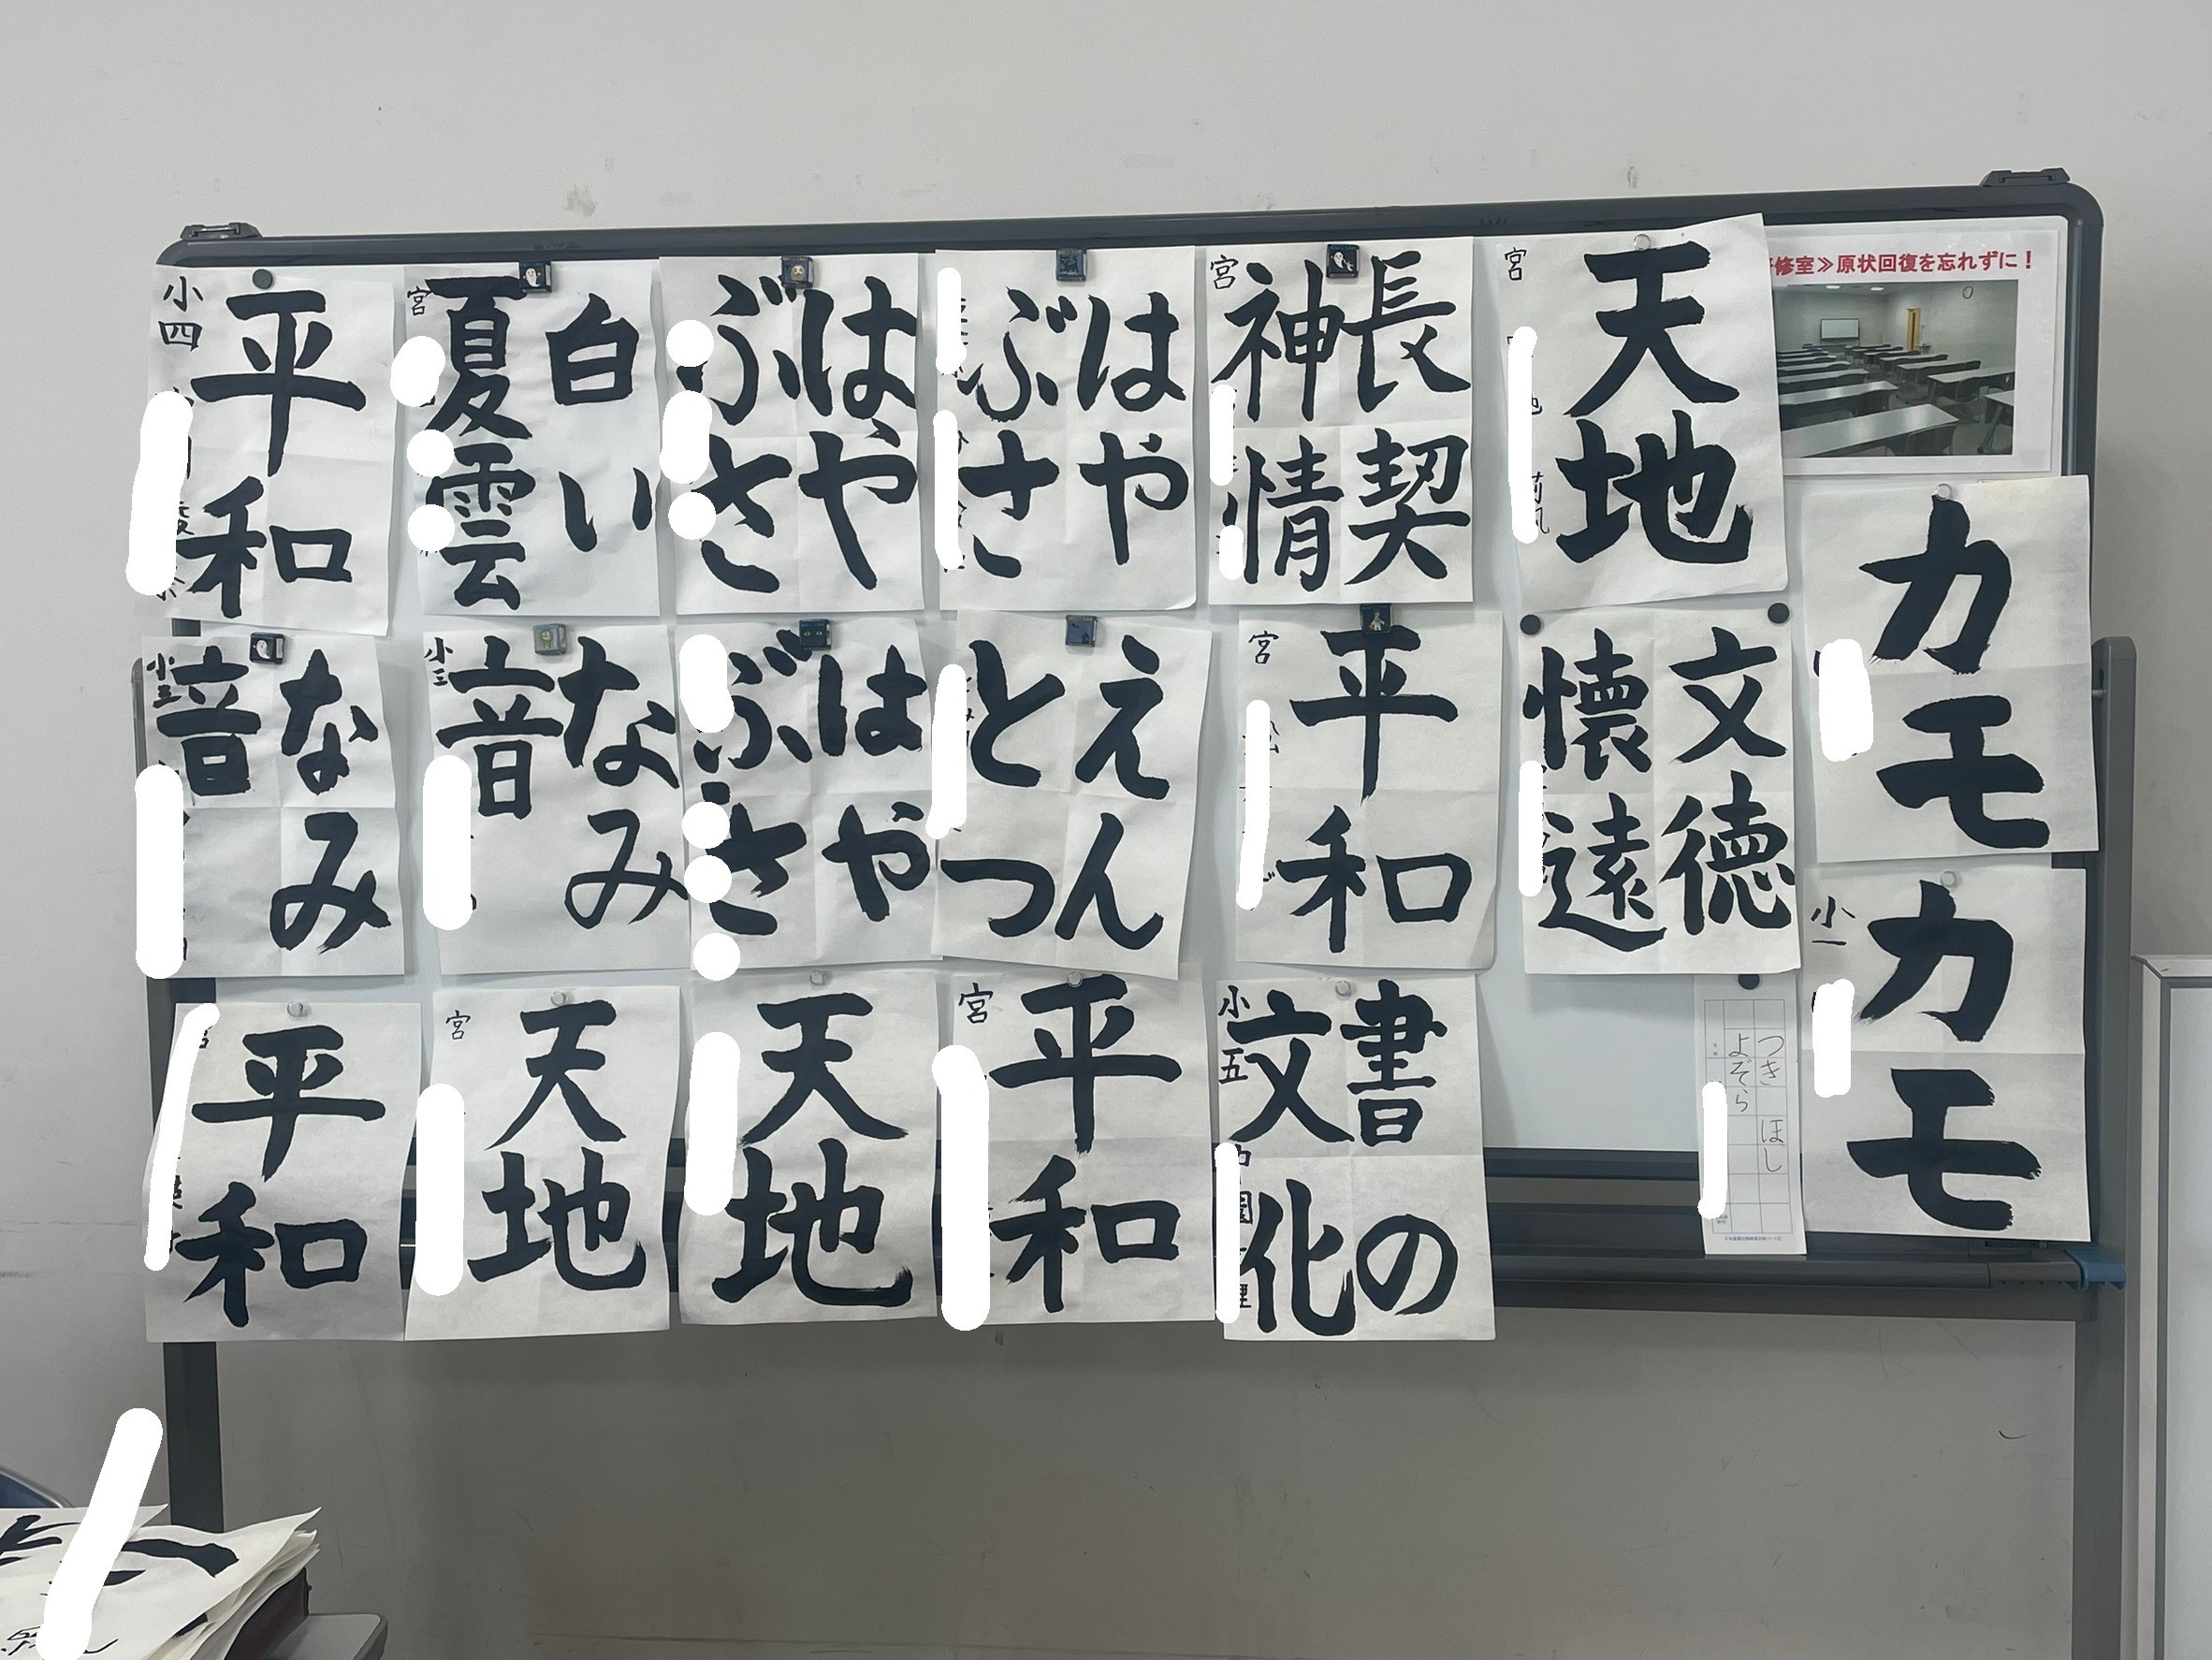 小四
平和
宮
白い
夏雲
はや
ぶさ
はや
ぶさ
宮
長契
神情
宮
天地
修室≫原状回復を忘れずに！
小三
なみ
音
小三
なみ
音
はや
ぶさ
えん
とつ
宮
平和
文徳
懐遠
カモ
平和
宮
天地
天地
宮
平和
小五
書の
文化
つき ほし
よぞら
小一
カモ